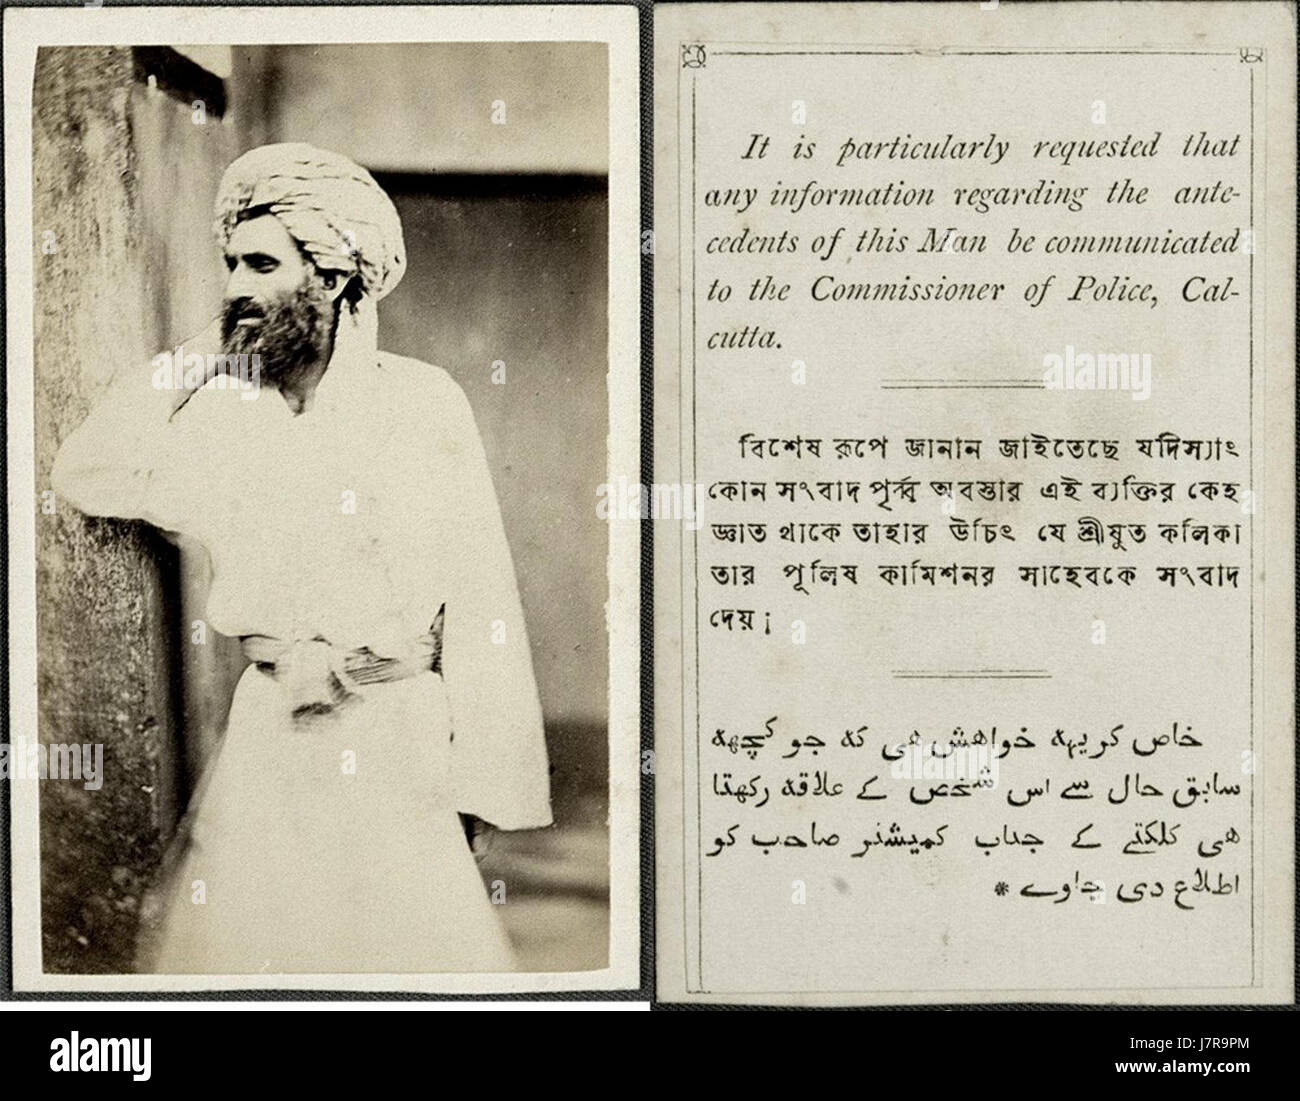 It is particularly requested that
any information regarding the ante-
cedents of this Man be communicated
to the Commissioner of Police, Cal-
cutta.
বিশেষ রূপে জানান জাইতেছে যদিস্যাৎ
কোন সংবাদ পূর্ব্ব অবস্তার এই ব্যক্তির কেহ
জ্ঞাত থাকে তাহার উচিৎ যে শ্রীযুত কলিকা
তার পূলিষ কামিশনর সাহেবকে সংবাদ
দেয়¡
خاص کر یہہ خواهش هی کہ جو کچھہ
سابق حال سے اس شخص کے علاقہ رکھتا
هی کلکتے کے جناب کمیشنر صاحب کو
اطلاع دی جاوے *
alamy
Image ID: J7R9PM
www.alamy.com